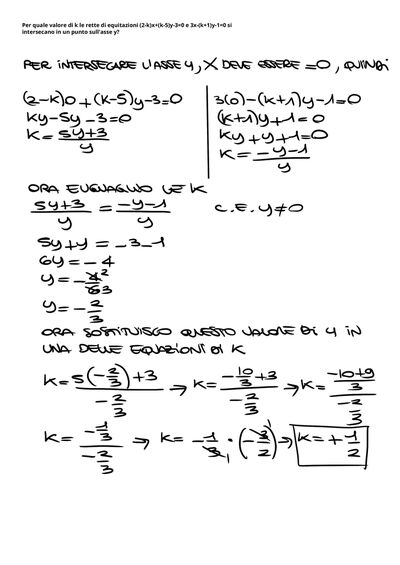 Per quale valore di k le rette di equitazioni (2-k)x+(k-5)y-3=0 e 3x-(k+1)y-1=0 si
intersecano in un punto sull'asse y?
PER INTERSECARE L'ASSE Y, X DEVE ESSERE =0, QUINDI
(2-K)0+(K-5)y-3=0
Ky-5y-3=0
K= (5y+3)/y
3(0)-(K+1)y-1=0
(K+1)y+1=0
Ky+y+1=0
K= (-y-1)/y
ORA EUGUAGLIO LE K
(5y+3)/y = (-y-1)/y C.E. y≠0
5y+y=-3-1
6y=-4
y=-4/6 2 3
y=-2/3
ORA SOSTITUISCO QUESTO VALORE DI Y IN
UNA DELLE EQUAZIONI DI K
K=(5(-2/3)+3)/(-2/3) → K=(-10/3+3)/(-2/3) → K=((-10+9)/3)/(-2/3)
K=(-1/3)/(-2/3) → K=-1/3·(-3/2) → K=+1/2